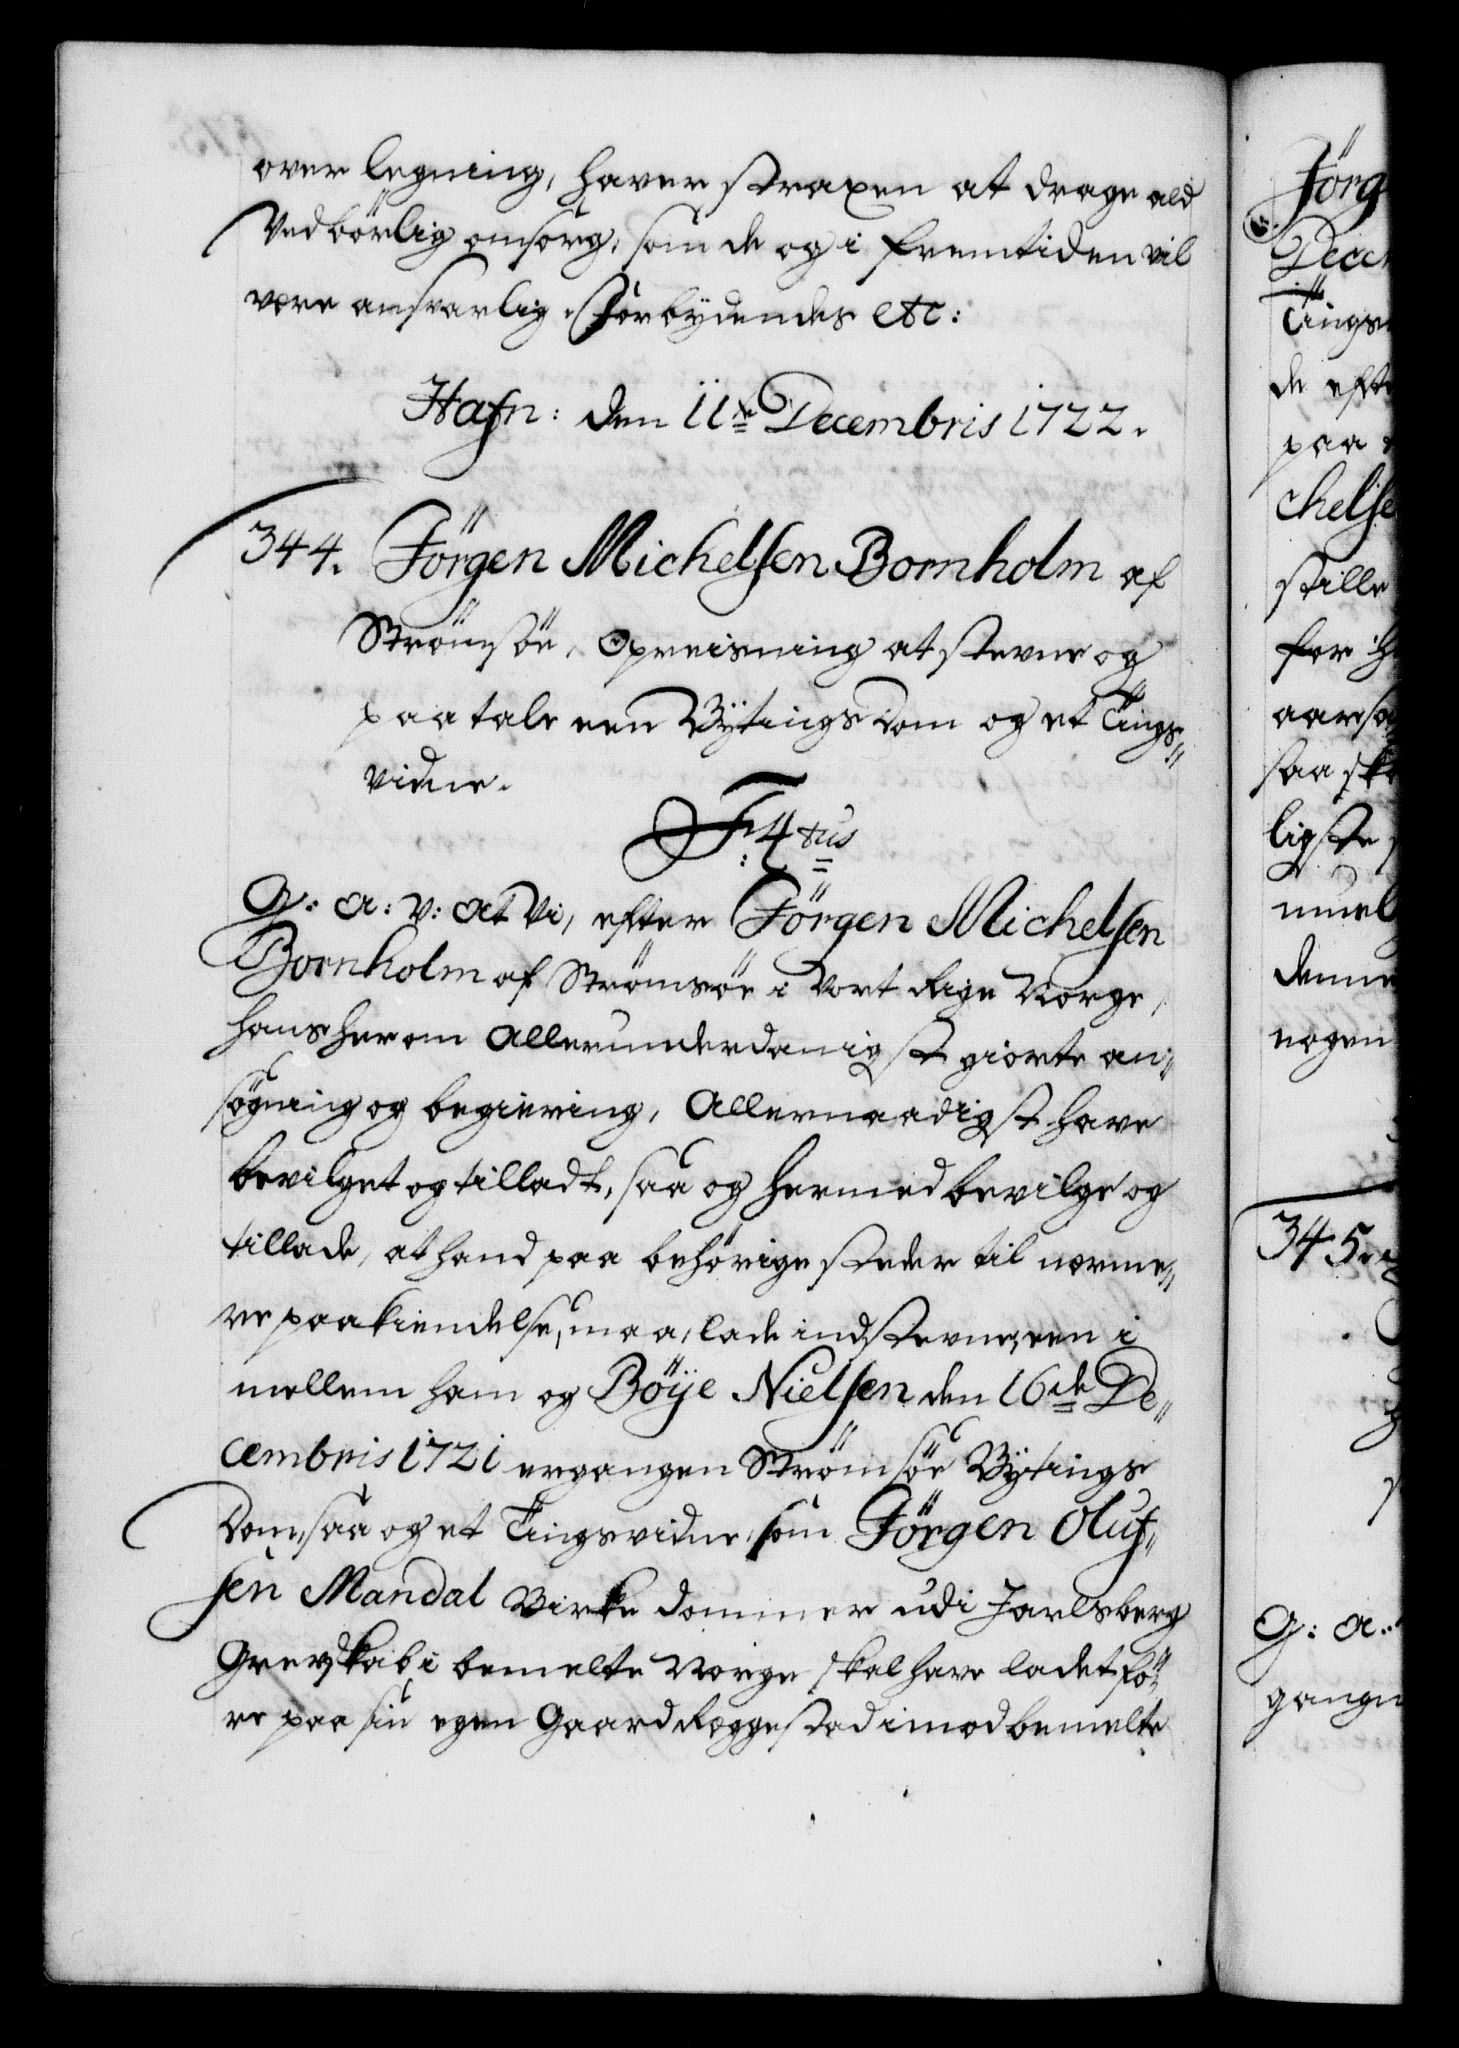 over legning, haver straxen at drage ald
vedbörlig omsorg, som de og i fremtiden vil
være ansvarlig. Forbÿdendes etc:
Hafn: den 11te Decembris 1722.
344. Jörgen Michelsen Bornholm af
Strömsöe, Opreisning at stevne og
paatale een Bÿtings Dom og et Tings„
vidne.
F:4tus
G: A: V: At Vi, efter Jörgen Michelsen
Bornholm af Strömsöe i Vort Rige Norge,
hans herom Allerunderdanigst giorte an„
søgning og begiering, Allernaadigst have
bevilget og tilladt, saa og hermed bevilge og
tillade, at hand paa behörige steder til nerme„
re paakiendelse, maa lade indstevne, een i
mellem ham og Böÿe Nielsen den 16de De„
cembris 1721 ergangen Strömsöe Bÿtings
Dom, saa og et Tingsvidne som Jörgen Oluf„
sen Mandal Birke dommer udi Jarlsberg
Grevskab i bemelte Norge skal have ladet fö„
re paa sin egen Gaard Roggestad imod bemelte
Jörg
Decem
Tings
de efte
paa
chelse
stille
for h
aarsa
saa ska
ligste
muel
denne
nogen
345.
G: A:
gangn